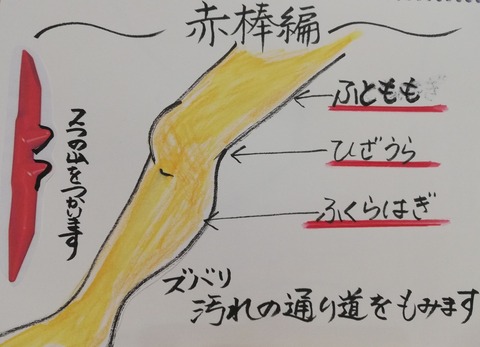 赤棒編
2つの山をつかいます
ふともも
ひざうら
ふくらはぎ
ズバリ
汚れの通り道をもみます